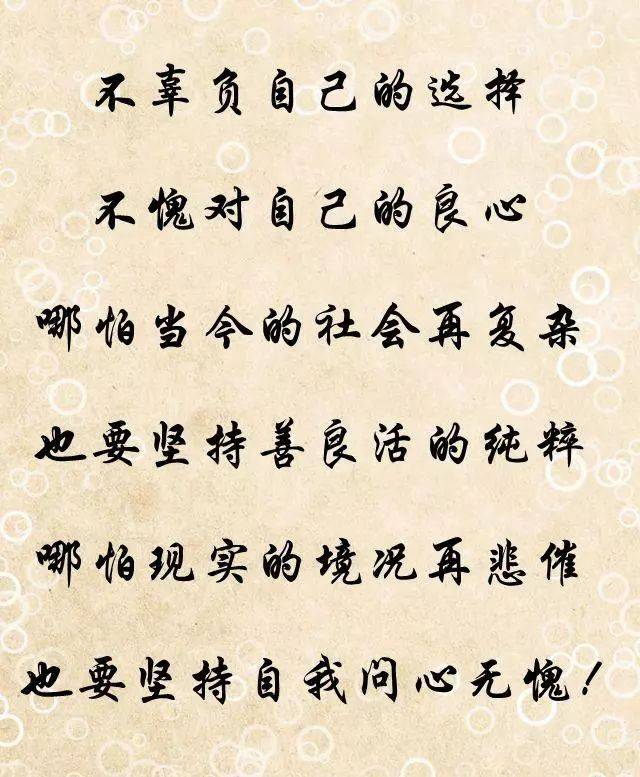 不辜负自己的选择
不愧对自己的良心
哪怕当今的社会再复杂
也要坚持善良活的纯粹
哪怕现实的境况再悲催
也要坚持自我问心无愧！